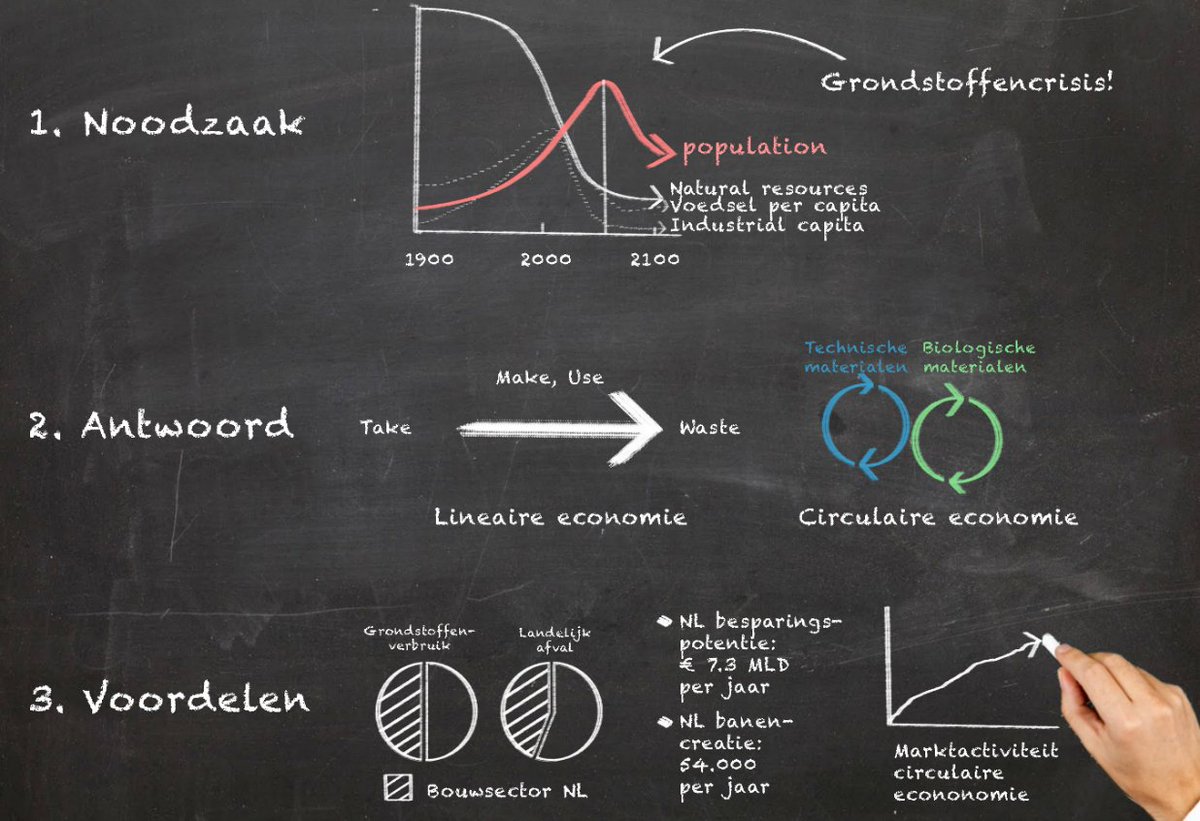 1. Noodzaak
Grondstoffencrisis!
population
Natural resources
Voedsel per capita
Industrial capita
1900 2000 2100
2. Antwoord
Take
Make, Use
Waste
Lineaire economie
Technische
materialen
Biologische
materialen
Circulaire economie
3. Voordelen
Grondstoffen-
verbruik
Landelijk
afval
Bouwsector NL
NL besparings-
potentie:
€ 7.3 MLD
per jaar
NL banen-
creatie:
54.000
per jaar
Marktactiviteit
circulaire
econonomie